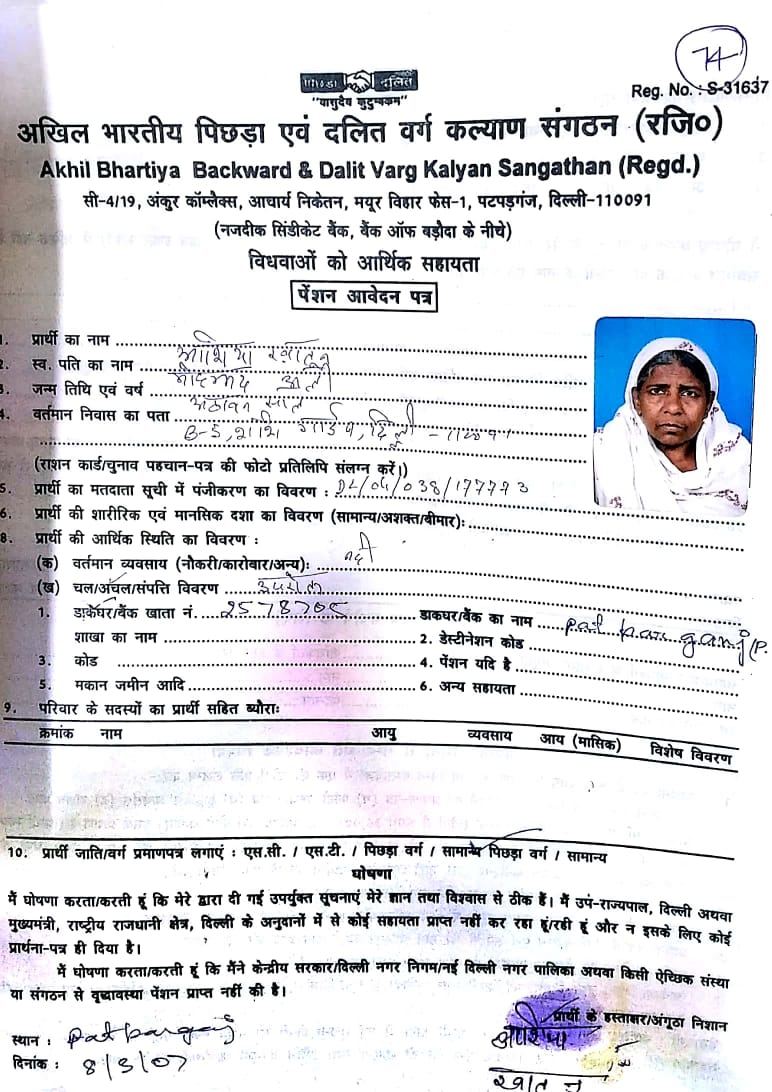 74
पिछड़ा दलित
"वासुदैव कुटुम्बकम"
Reg. No. : S-31637
अखिल भारतीय पिछड़ा एवं दलित वर्ग कल्याण संगठन (रजि०)
Akhil Bhartiya Backward & Dalit Varg Kalyan Sangathan (Regd.)
सी-4/19, अंकुर कॉम्लैक्स, आचार्य निकेतन, मयूर विहार फेस-1, पटपड़गंज, दिल्ली-110091
(नजदीक सिंडीकेट बैंक, बैंक ऑफ बड़ौदा के नीचे)
विधवाओं को आर्थिक सहायता
पेंशन आवेदन पत्र
1. प्रार्थी का नाम आशिया खातून
2. स्व. पति का नाम मोहम्मद अली
3. जन्म तिथि एवं वर्ष अठावन साल
4. वर्तमान निवास का पता
B-5, शशि गार्डन, दिल्ली -
(राशन कार्ड/चुनाव पहचान-पत्र की फोटो प्रतिलिपि संलग्न करें।)
5. प्रार्थी का मतदाता सूची में पंजीकरण का विवरण : DL/04/038/177773
6. प्रार्थी की शारीरिक एवं मानसिक दशा का विवरण (सामान्य/अशक्त/बीमार):
8. प्रार्थी की आर्थिक स्थिति का विवरण :
(क) वर्तमान व्यवसाय (नौकरी/कारोबार/अन्य): नही
(ख) चल/अचल/संपत्ति विवरण
1. डाकघर/बैंक खाता नं. 2578705 डाकघर/बैंक का नाम Pat par ganj (P.
शाखा का नाम 2. डेस्टीनेशन कोड
3. कोड 4. पेंशन यदि है
5. मकान जमीन आदि 6. अन्य सहायता
9. परिवार के सदस्यों का प्रार्थी सहित ब्यौराः
क्रमांक नाम आयु व्यवसाय आय (मासिक) विशेष विवरण
10. प्रार्थी जाति/वर्ग प्रमाणपत्र लगाएं : एस.सी. / एस.टी. / पिछड़ा वर्ग / सामान्य पिछड़ा वर्ग / सामान्य
घोषणा
मैं घोषणा करता/करती हूं कि मेरे द्वारा दी गई उपर्युक्त सूचनाएं मेरे ज्ञान तथा विश्वास से ठीक हैं। मैं उप-राज्यपाल, दिल्ली अथवा
मुख्यमंत्री, राष्ट्रीय राजधानी क्षेत्र, दिल्ली के अनुदानों में से कोई सहायता प्राप्त नहीं कर रहा हूं/रही हूं और न इसके लिए कोई
प्रार्थना-पत्र ही दिया है।
मैं घोषणा करता/करती हूं कि मैंने केन्द्रीय सरकार/दिल्ली नगर निगम/नई दिल्ली नगर पालिका अथवा किसी ऐच्छिक संस्था
या संगठन से वृद्धावस्था पेंशन प्राप्त नहीं की है।
प्रार्थी के हस्ताक्षर/अंगूठा निशान
स्थान : Patparganj
आशिया
दिनांक : 8/3/07
खातून